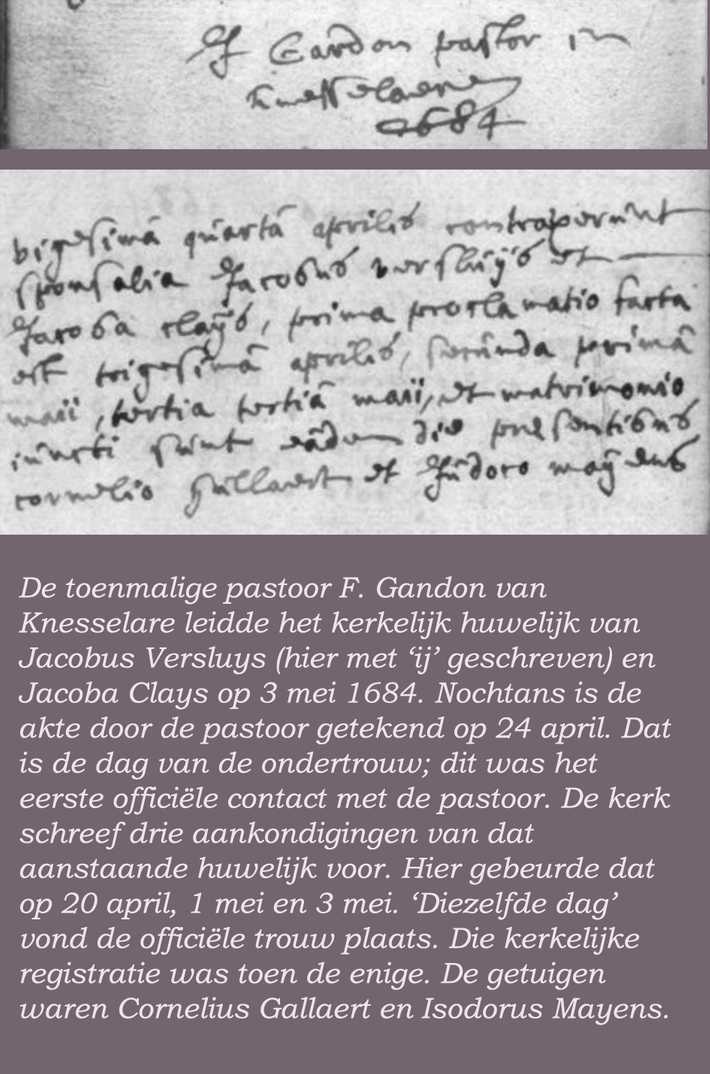 F Gandon pastor in
knesselaere
1684
vigesimâ quartâ aprilis contraxerunt
sponsalia Jacobus versluijs et
Jacoba claijs, prima proclamatio facta
est trigesimâ aprilis, secunda primâ
maii, tertia tertiâ maii, et matrimonio
iuncti sunt eâdem die presentibus
cornelio gullaert et maijens
De toenmalige pastoor F. Gandon van
Knesselare leidde het kerkelijk huwelijk van
Jacobus Versluys (hier met ‘ij’ geschreven) en
Jacoba Clays op 3 mei 1684. Nochtans is de
akte door de pastoor getekend op 24 april. Dat
is de dag van de ondertrouw; dit was het
eerste officiële contact met de pastoor. De kerk
schreef drie aankondigingen van dat
aanstaande huwelijk voor. Hier gebeurde dat
op 20 april, 1 mei en 3 mei. ‘Diezelfde dag’
vond de officiële trouw plaats. Die kerkelijke
registratie was toen de enige. De getuigen
waren Cornelius Gallaert en Isodorus Mayens.